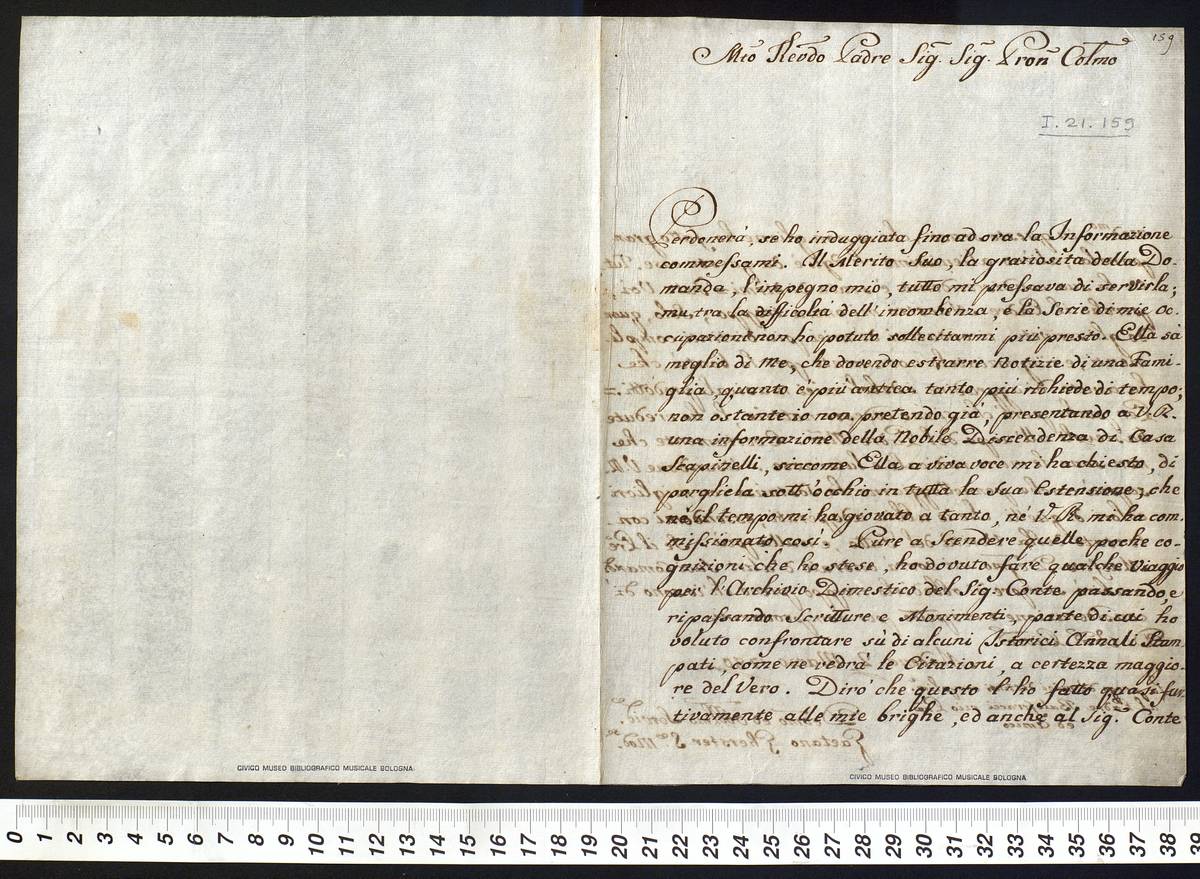 159
Mto Revdo Padre Sig. Sig. Pron Colmo
I. 21. 159
Perdonerà, se ho induggiata fino ad ora la Informazione
commessami. Il Merito Suo, la graziosità della Do-
manda, l'impegno mio, tutto mi pressava di servirla;
ma tra la difficoltà dell'incombenza, e la Serie di mie oc-
cupazioni non ho potuto sollecitarmi più presto. Ella sà
meglio di me, che dovendo estrarre Notizie di una Fami-
glia, quanto è più antica tanto più richiede di tempo;
non ostante io non pretendo già, presentando a V. R.
una informazione della Nobile Discendenza di Casa
Scapinelli, siccome Ella a viva voce mi ha chiesto, di
porgliela sott'occhio in tutta la Sua Estensione; che
nè il tempo mi ha giovato a tanto, nè V. R. mi ha com-
missionato così. Pure a Scendere quelle poche co-
gnizioni che ho stese, ho dovuto fare qualche Viaggio
per l'Archivio Dimestico del Sig. Conte passando, e
ripassando Scritture e Monimenti, parte di cui ho
voluto confrontare sù di alcuni Istorici Annali Stam-
pati, come ne vedrà le Citazioni, a certezza maggio-
re del Vero. Dirò che questo l'ho fatto quasi fur-
tivamente alle mie brighe, ed anche al Sig. Conte
CIVICO MUSEO BIBLIOGRAFICO MUSICALE BOLOGNA
CIVICO MUSEO BIBLIOGRAFICO MUSICALE BOLOGNA
0 1 2 3 4 5 6 7 8 9 10 11 12 13 14 15 16 17 18 19 20 21 22 23 24 25 26 27 28 29 30 31 32 33 34 35 36 37 38 39